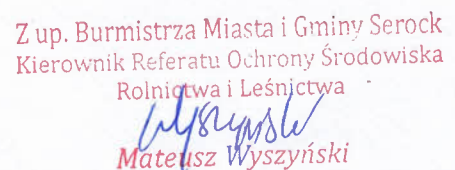 Z up. Burmistrza Miasta i Gminy Serock
Kierownik Referatu Ochrony Środowiska
Rolnictwa i Leśnictwa
Mateusz Wyszyński